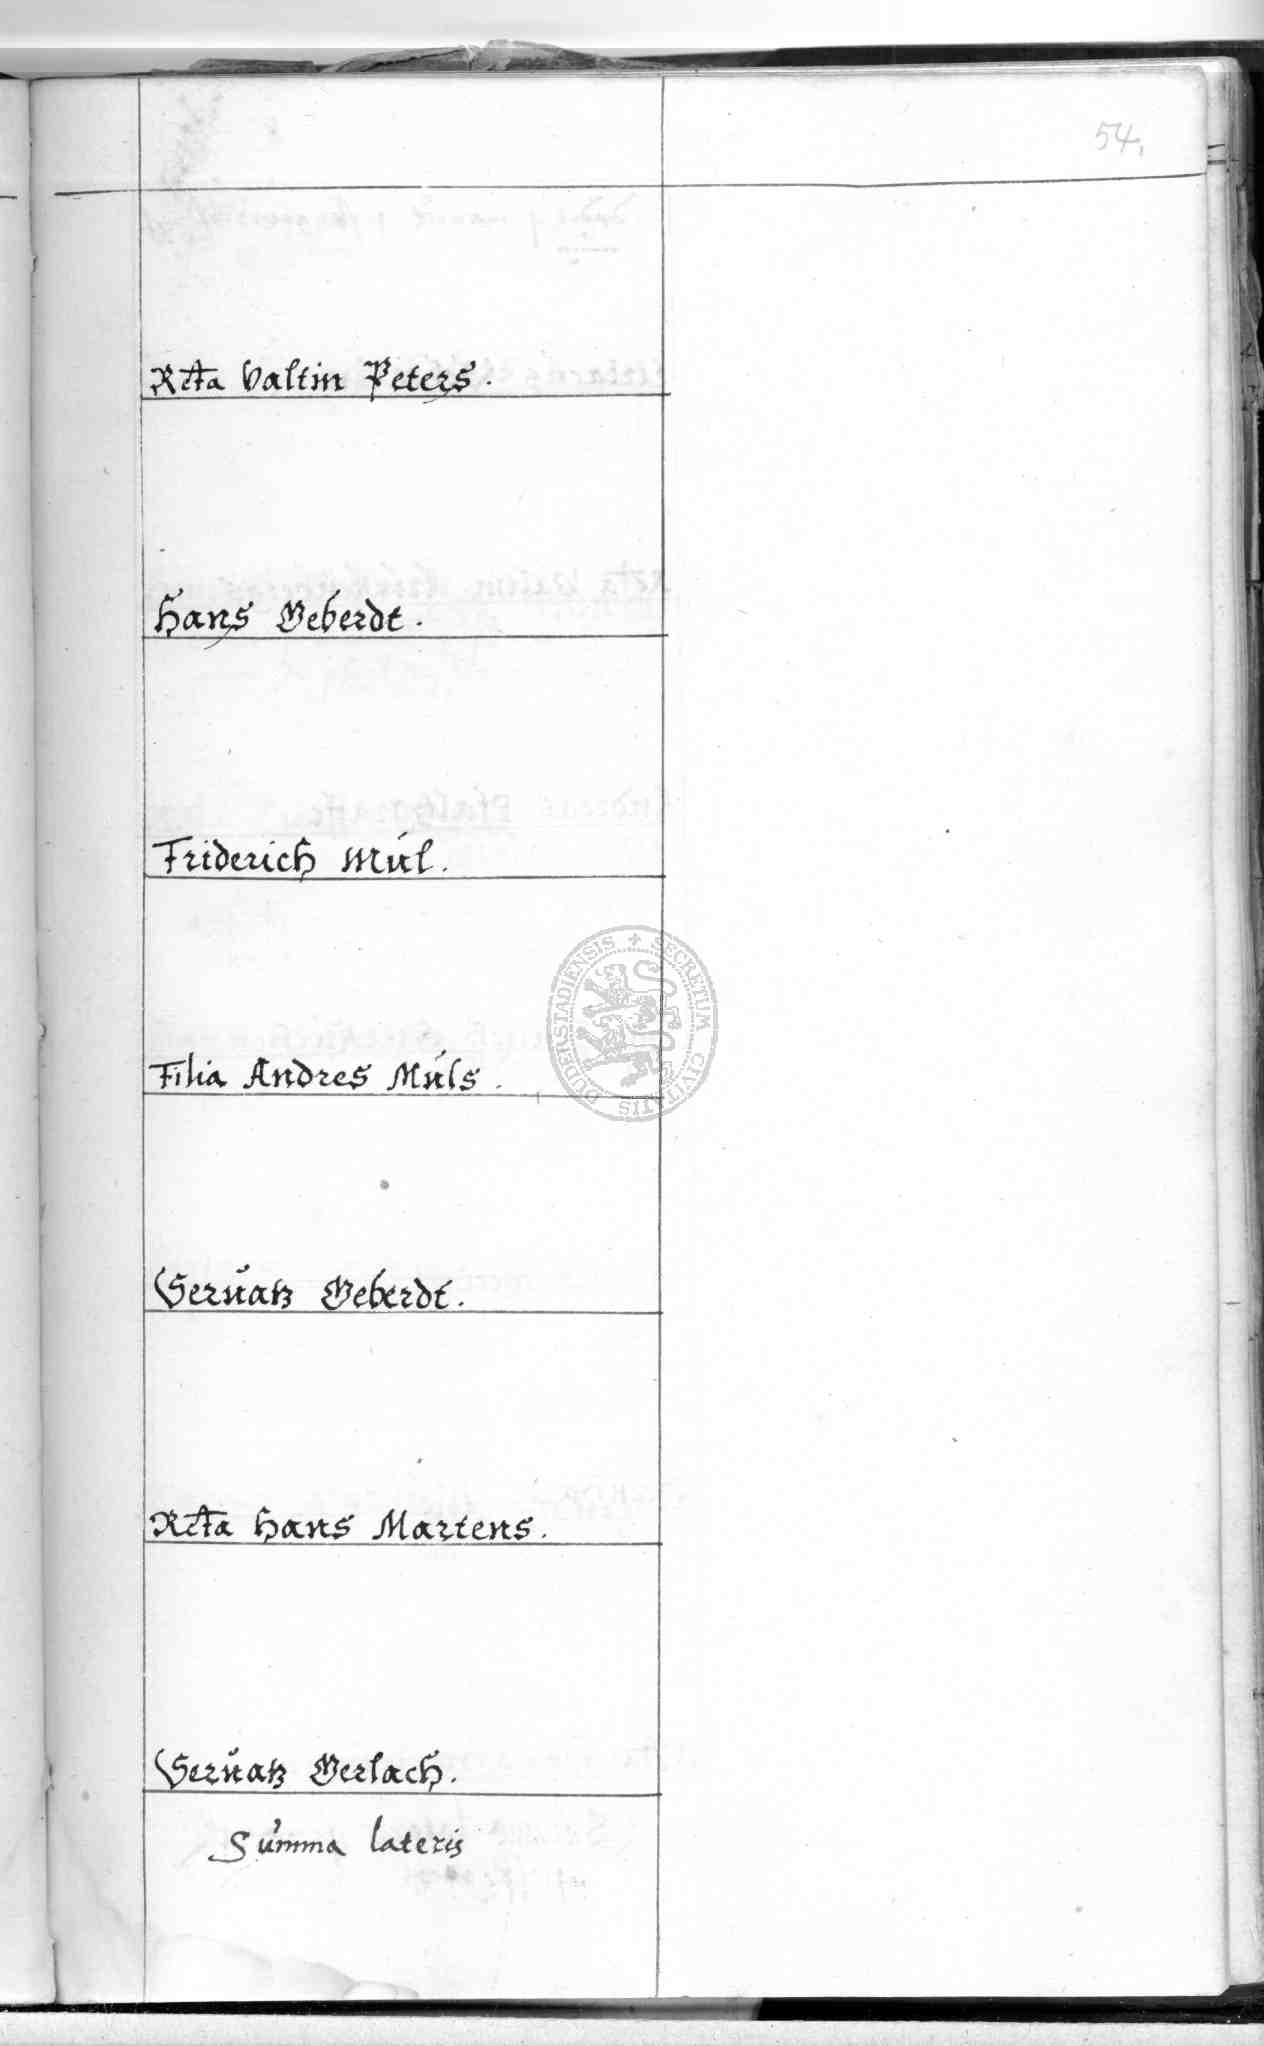 54.
Rcta Valtin Peters.
Hans Geberdt.
Friderich Múl.
Filia Andres Múls.
SECRETUM CIVITATIS DUDERSTADIENSIS
Seruatz Geberdt.
Rcta Hans Martens.
Seruatz Gerlach.
Sum̃a lateris